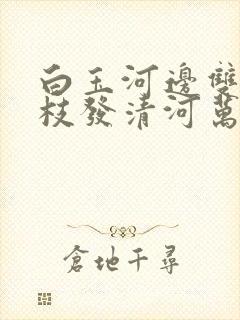 白玉河邊雙
枝發清河萬
倉地千尋